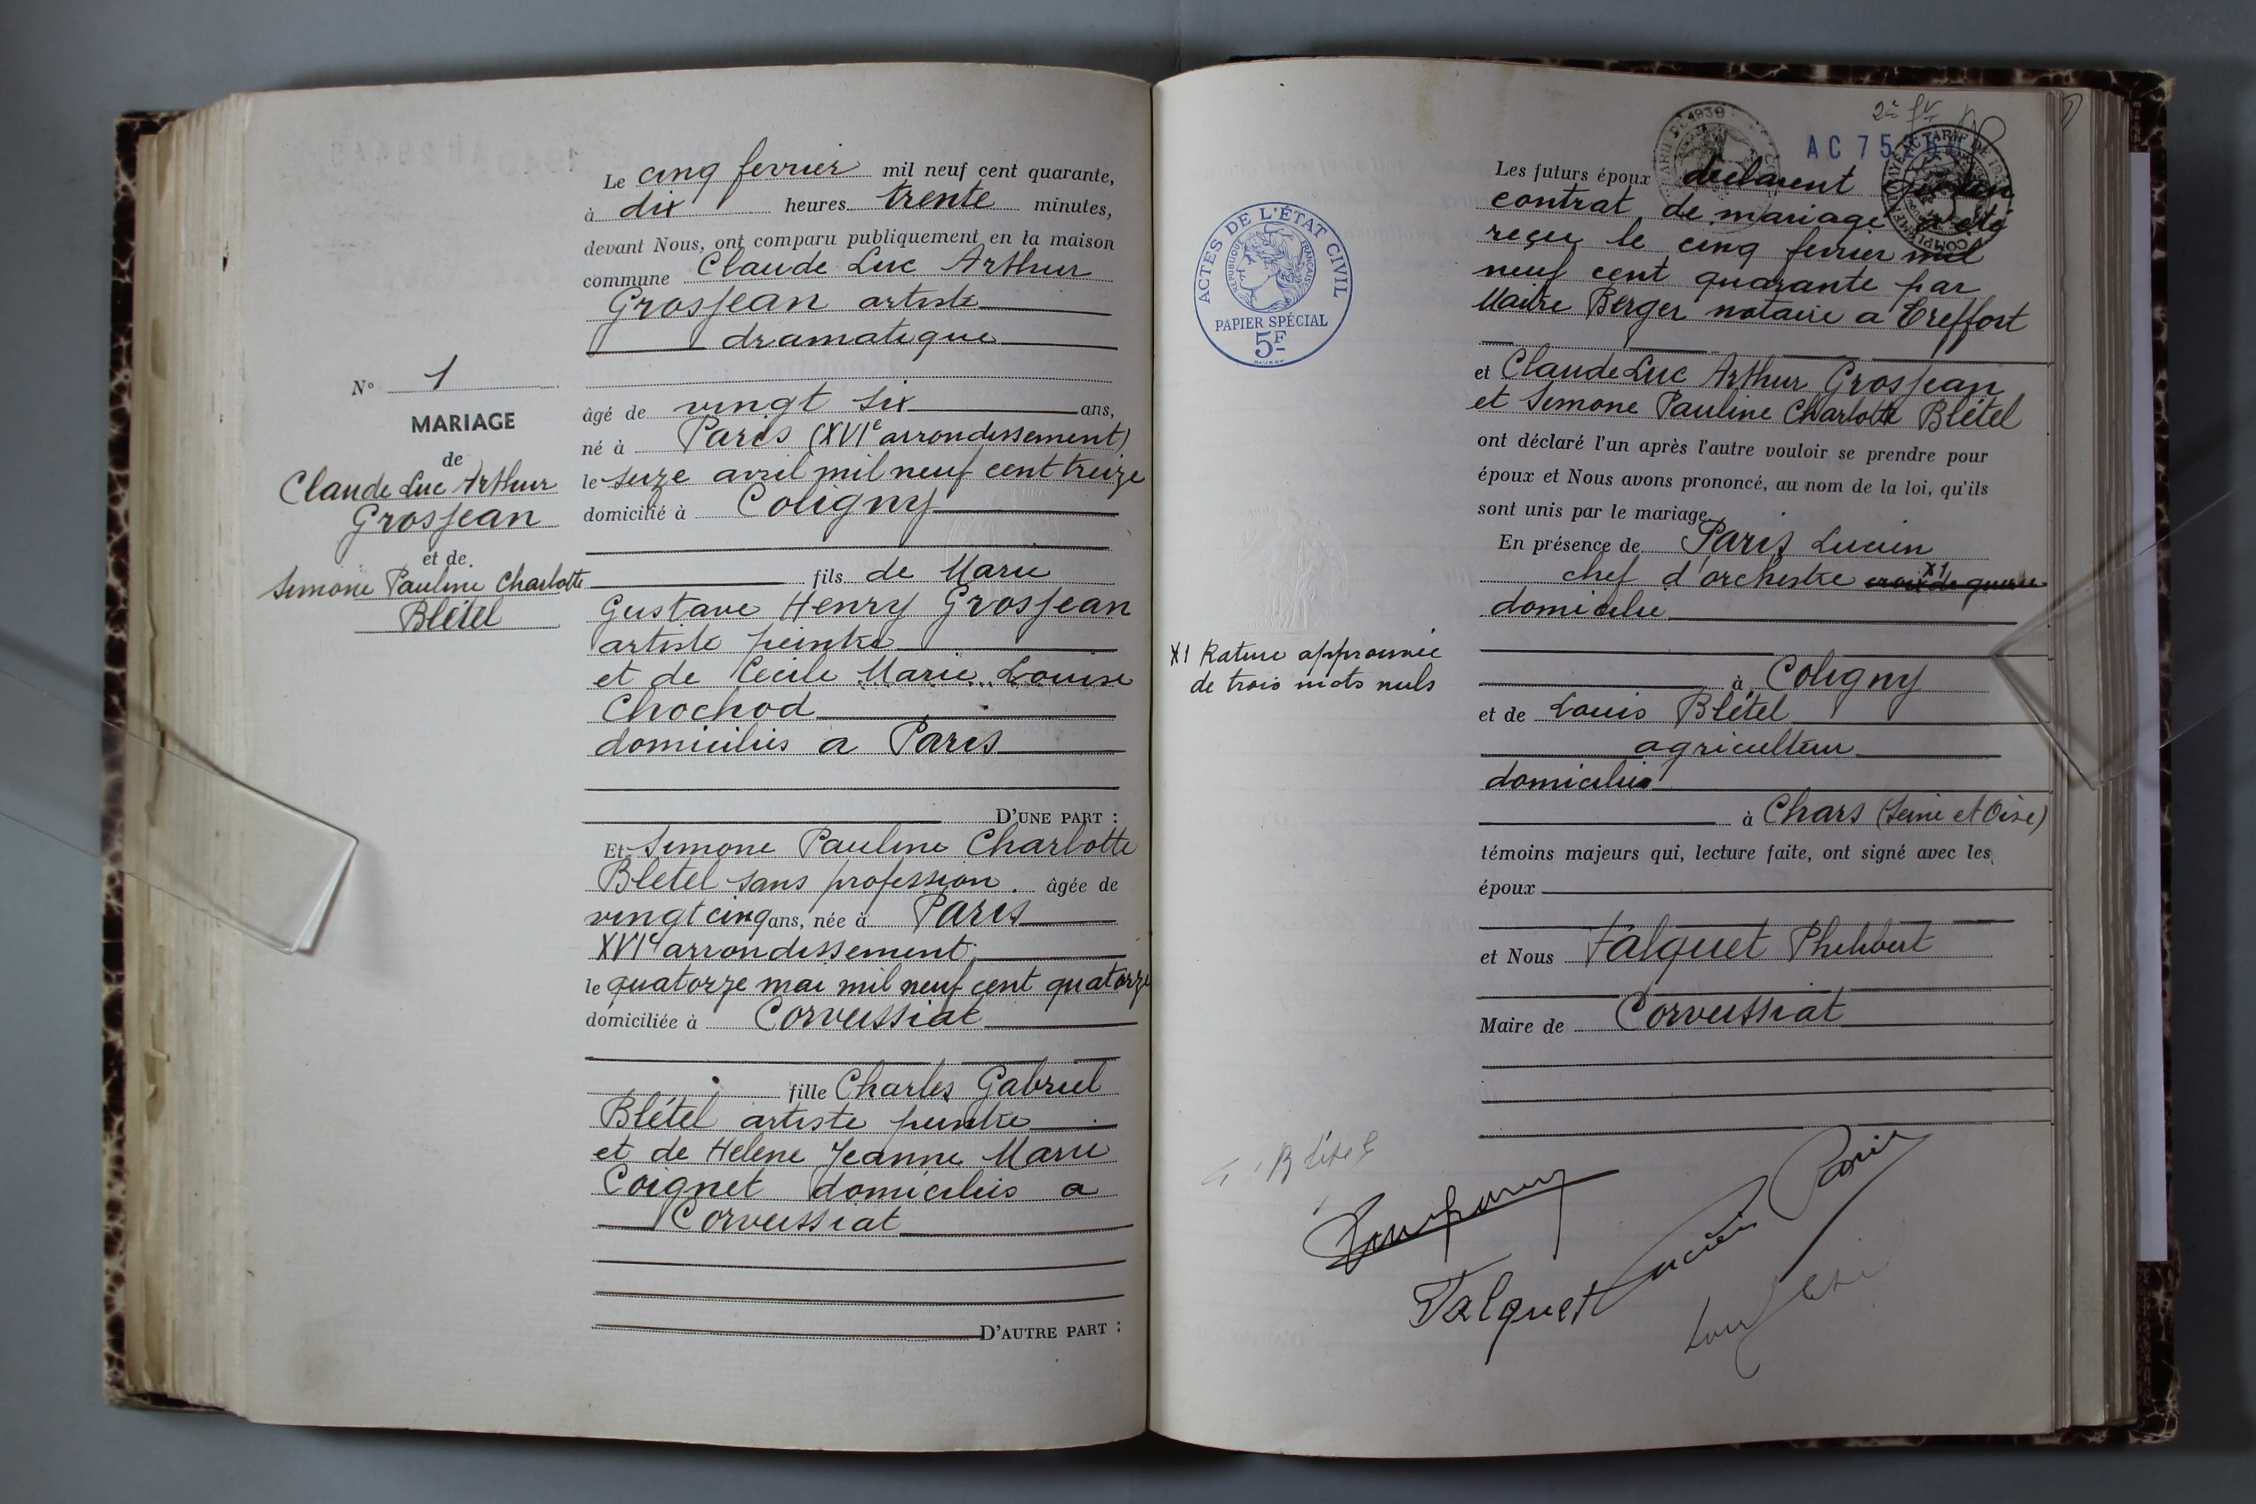 N° 1
MARIAGE
de
Claude Luc Arthur
Grosjean
et de
Simone Pauline Charlotte
Blétel
Le cinq fevrier mil neuf cent quarante,
à dix heures trente minutes,
devant Nous, ont comparu publiquement en la maison
commune Claude Luc Arthur
Grosjean artiste
dramatique
âgé de vingt six ans,
né à Paris (XVIe arrondissement)
le seize avril mil neuf cent treize
domicilié à Coligny
fils de Marie
Gustave Henry Grosjean
artiste peintre
et de Cécile Marie Louise
Chochod
domiciliés a Paris
D'UNE PART :
Et Simone Pauline Charlotte
Blétel sans profession. âgée de
vingt cinq ans, née à Paris
XVIe arrondissement
le quatorze mai mil neuf cent quatorze
domiciliée à Corveissiat
fille Charles Gabriel
Blétel artiste peintre
et de Helene Jeanne Marie
Coignet domiciliés a
Corveissiat
D'AUTRE PART :
AC 75
ACTES DE L'ÉTAT CIVIL
RÉPUBLIQUE FRANÇAISE
PAPIER SPÉCIAL
5F
Les futurs époux déclarent qu'un
contrat de mariage a été
reçu le cinq fevrier mil
neuf cent quarante par
Maitre Berger notaire a Treffort
et Claude Luc Arthur Grosjean
et Simone Pauline Charlotte Blétel
ont déclaré l'un après l'autre vouloir se prendre pour
époux et Nous avons prononcé, au nom de la loi, qu'ils
sont unis par le mariage
En présence de Paris Lucien
chef d'orchestre croix de guerre X1
domicilié
à Coligny
X1 Rature approuvée
de trois mots nuls
et de Louis Blétel
agriculteur
domicilié
à Chars (Seine et Oise)
témoins majeurs qui, lecture faite, ont signé avec les
époux
et Nous Falquet Philibert
Maire de Corveissiat
Blétel
Falquet
Lucien Paris